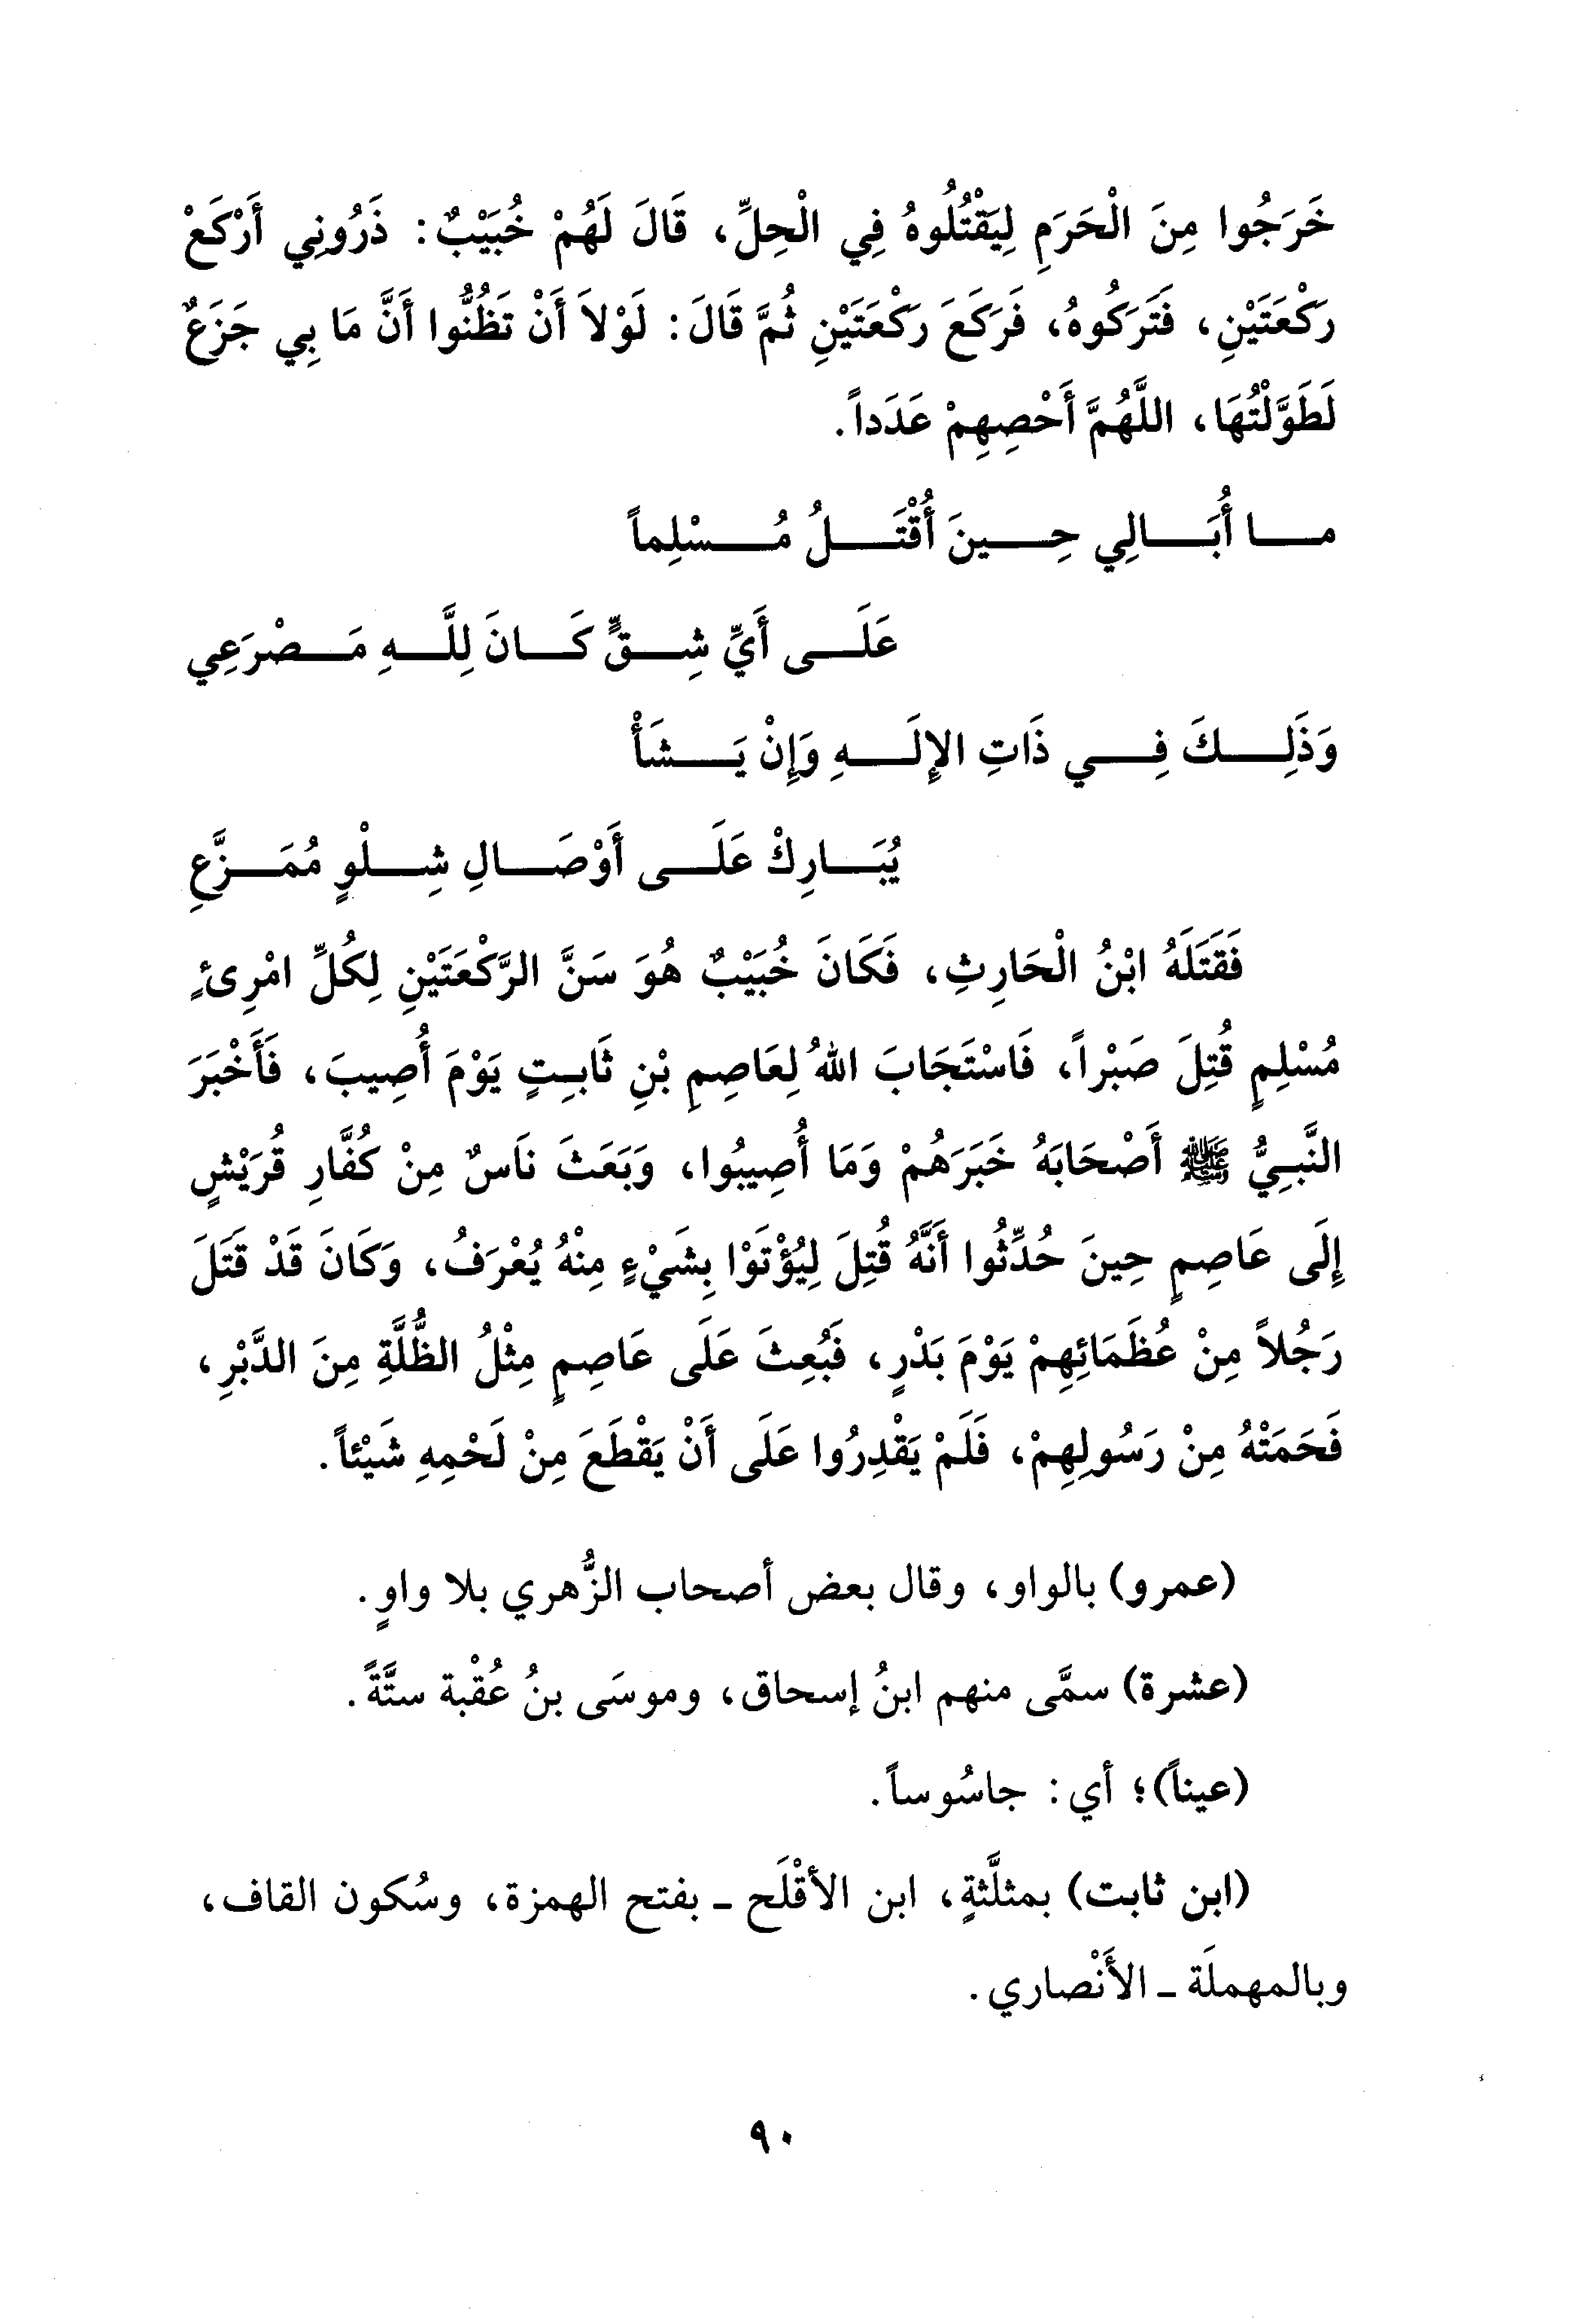 خَرَجُوا مِنَ الْحَرَمِ لِيَقْتُلُوهُ فِي الْحِلِّ، قَالَ لَهُمْ خُبَيْبٌ: ذَرُونِي أَرْكَعْ
رَكْعَتَيْنِ، فَتَرَكُوهُ، فَرَكَعَ رَكْعَتَيْنِ ثُمَّ قَالَ: لَوْلاَ أَنْ تَظُنُّوا أَنَّ مَا بِي جَزَعٌ
لَطَوَّلْتُهَا، اللَّهُمَّ أَحْصِهِمْ عَدَداً.
مـا أُبَـالِي حِـينَ أُقْتَـلُ مُـسْلِماً
عَلَـى أَيِّ شِـقٍّ كَـانَ لِلَّـهِ مَـصْرَعِي
وَذَلِـكَ فِـي ذَاتِ الإِلَـهِ وَإِنْ يَـشَأْ
يُبَـارِكْ عَلَـى أَوْصَـالِ شِـلْوٍ مُمَـزَّعِ
فَقَتَلَهُ ابْنُ الْحَارِثِ، فَكَانَ خُبَيْبٌ هُوَ سَنَّ الرَّكْعَتَيْنِ لِكُلِّ امْرِئٍ
مُسْلِمٍ قُتِلَ صَبْراً، فَاسْتَجَابَ اللهُ لِعَاصِمِ بْنِ ثَابِتٍ يَوْمَ أُصِيبَ، فَأَخْبَرَ
النَّبِيُّ ﷺ أَصْحَابَهُ خَبَرَهُمْ وَمَا أُصِيبُوا، وَبَعَثَ نَاسٌ مِنْ كُفَّارِ قُرَيْشٍ
إِلَى عَاصِمٍ حِينَ حُدِّثُوا أَنَّهُ قُتِلَ لِيُؤْتَوْا بِشَيْءٍ مِنْهُ يُعْرَفُ، وَكَانَ قَدْ قَتَلَ
رَجُلاً مِنْ عُظَمَائِهِمْ يَوْمَ بَدْرٍ، فَبُعِثَ عَلَى عَاصِمٍ مِثْلُ الظُّلَّةِ مِنَ الدَّبْرِ،
فَحَمَتْهُ مِنْ رَسُولِهِمْ، فَلَمْ يَقْدِرُوا عَلَى أَنْ يَقْطَعَ مِنْ لَحْمِهِ شَيْئاً.
(عمرو) بالواو، وقال بعض أصحاب الزُّهري بلا واوٍ.
(عشرة) سمَّى منهم ابنُ إسحاق، وموسَى بنُ عُقْبة ستَّةً.
(عيناً)؛ أي: جاسُوساً.
(ابن ثابت) بمثلَّثةٍ، ابن الأقْلَح ـ بفتح الهمزة، وسُكون القاف،
وبالمهملَة ـ الأَنْصاري.
٩٠